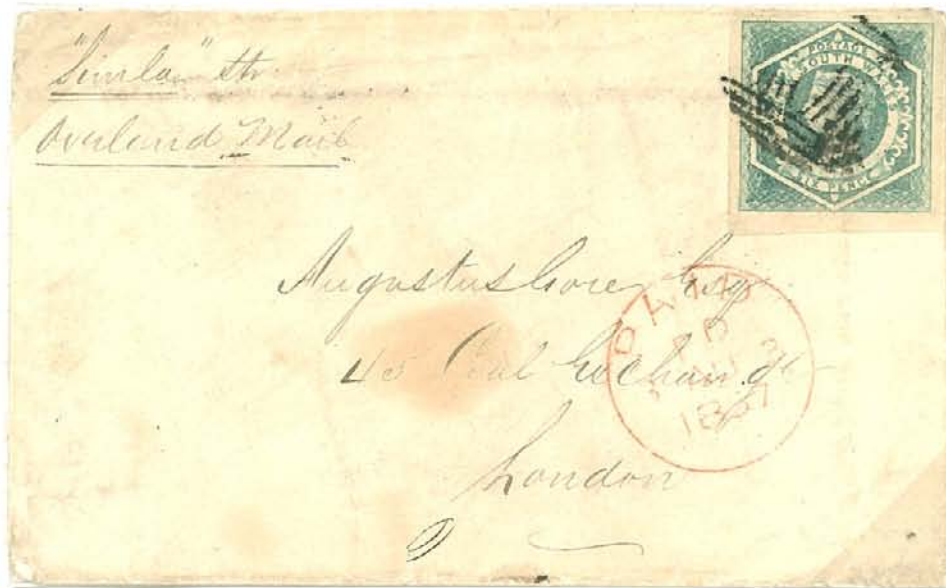 "Simla" Str.
Overland Mail
POSTAGE
SOUTH WALES
SIX PENCE
Augustus Gore Esq
45 Coal Exchange
London
PAID
1857